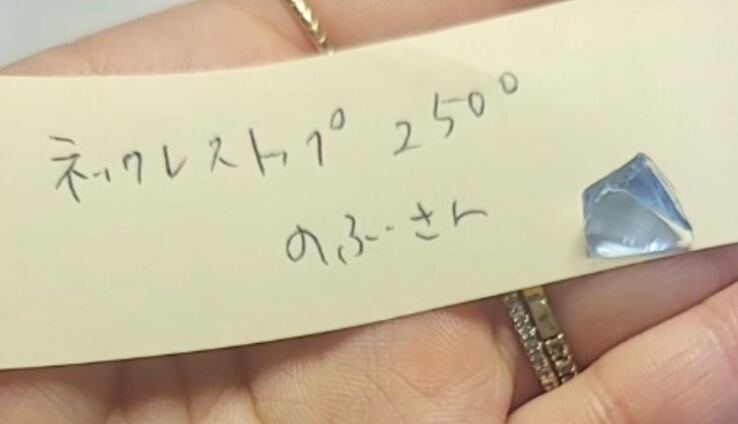 ネックレストップ 2500
のぶさん